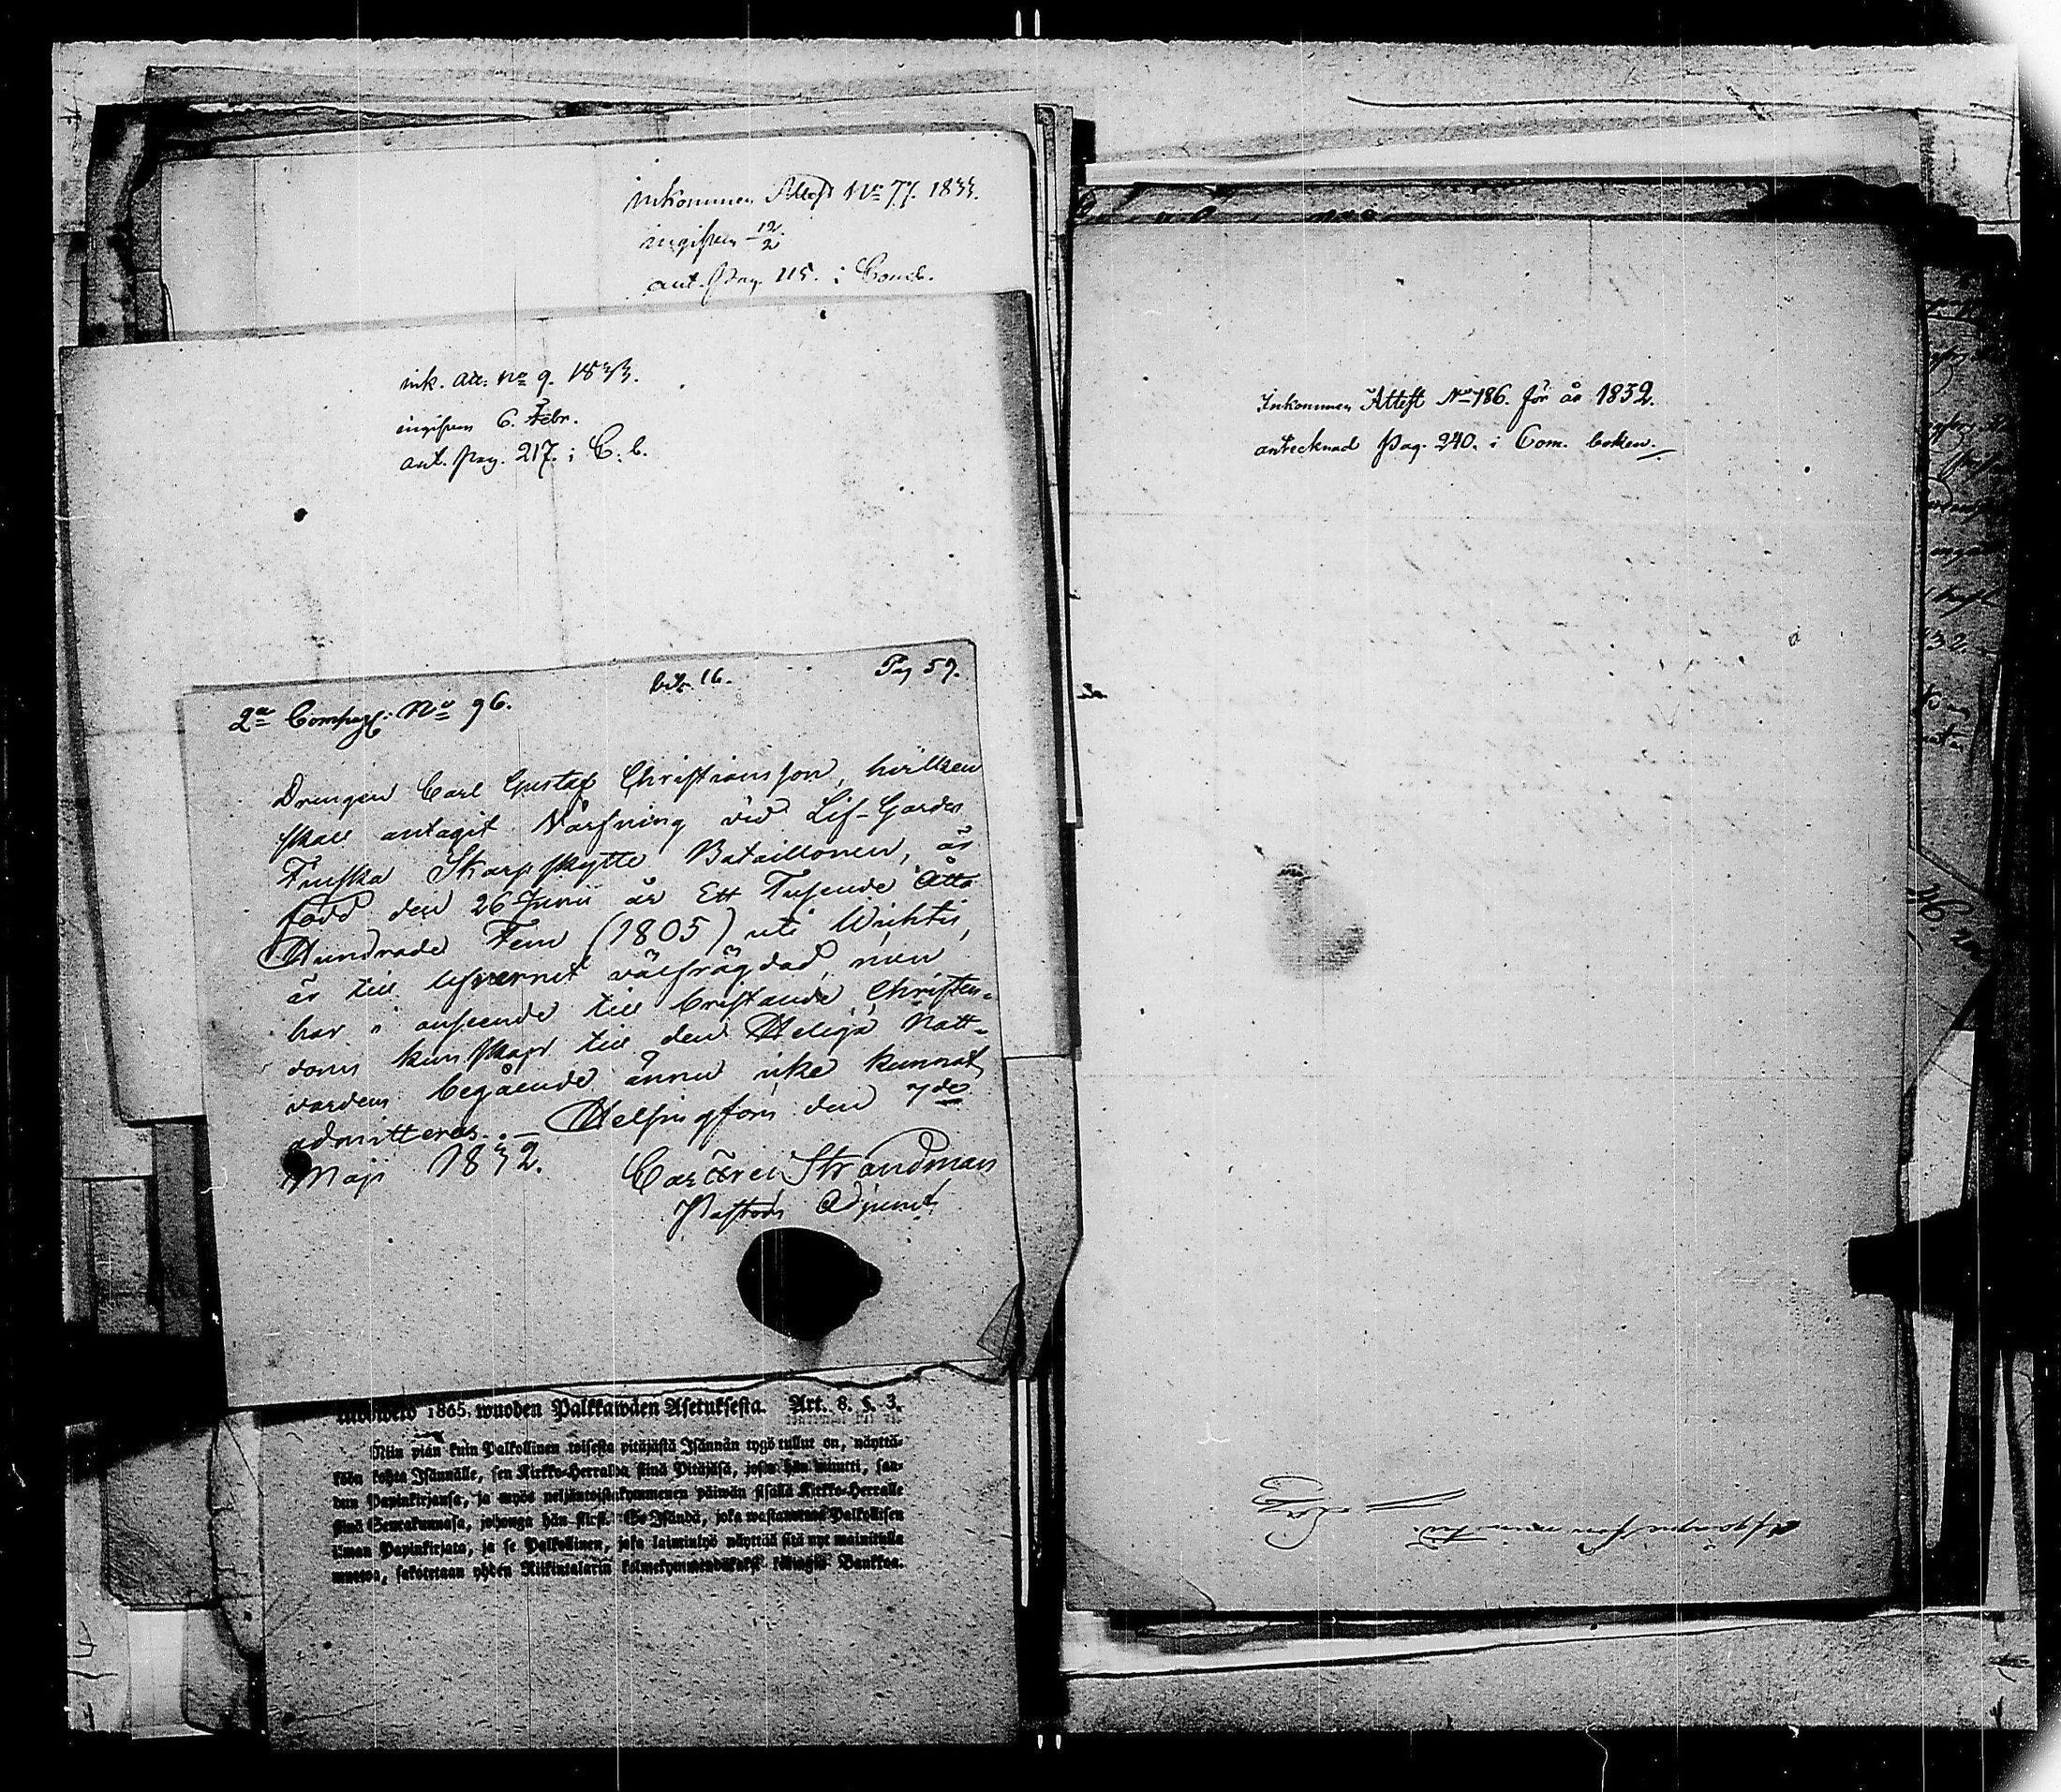 inkommen Attest No 77. 1833.
ingifven 12/2
ant. Pag. 115. i Comb.
ink. att. No 9. 1833.
ingifven 6. Febr.
ant. Pag. 217. i C. b.
bil. 16.
Pag 59.
2a Compag: No 96.
Drengen Carl Gustaf Christiansson, hvilken
skall antagit Värfning vid Lif-Gardes
Finska Skarpskytte Bataillonen, är
född den 26 Junii år Ett Tusende Åtta
Hundrade Fem (1805) uti Wichtis,
är till lefvernet välfrägdad, men
har i anseende till bristande Christen-
doms kunskaper till den Heliga Natt-
vardens begående ännu icke kunnat
admitteras. – Helsingfors den 7de
Maji 1832.
Strandman
Pastors Adjunct
1865. wuoden Palkkawäen Asetuksesta. Art. 8. §. 3.
Niin pian kuin Palkollinen toisesta pitäjästä Isännän tygö tullut on, näyttä-
köön kohta Isännälle, sen Kirkko-Herralda siinä Pitäjäsä, josta hän muutti, saa-
dun Papinkirjansa, ja myös neljäntoistakymmenen päiwän sisällä Kirkko-Herralle
siinä Seurakunnasa, johonga hän siirsi. Se Isändä, joka wastanottaa Palkollisen
ilman Papinkirjata, ja se Palkollinen, joka laiminlyö näyttää sitä nyt mainitulla
muotoa, sakotetaan yhden Riikintalarin kolmekymmendäkaksi killingiä Bankkoa.
Inkommen Attest No 186. för år 1832.
antecknad Pag. 240. i Com. boken.